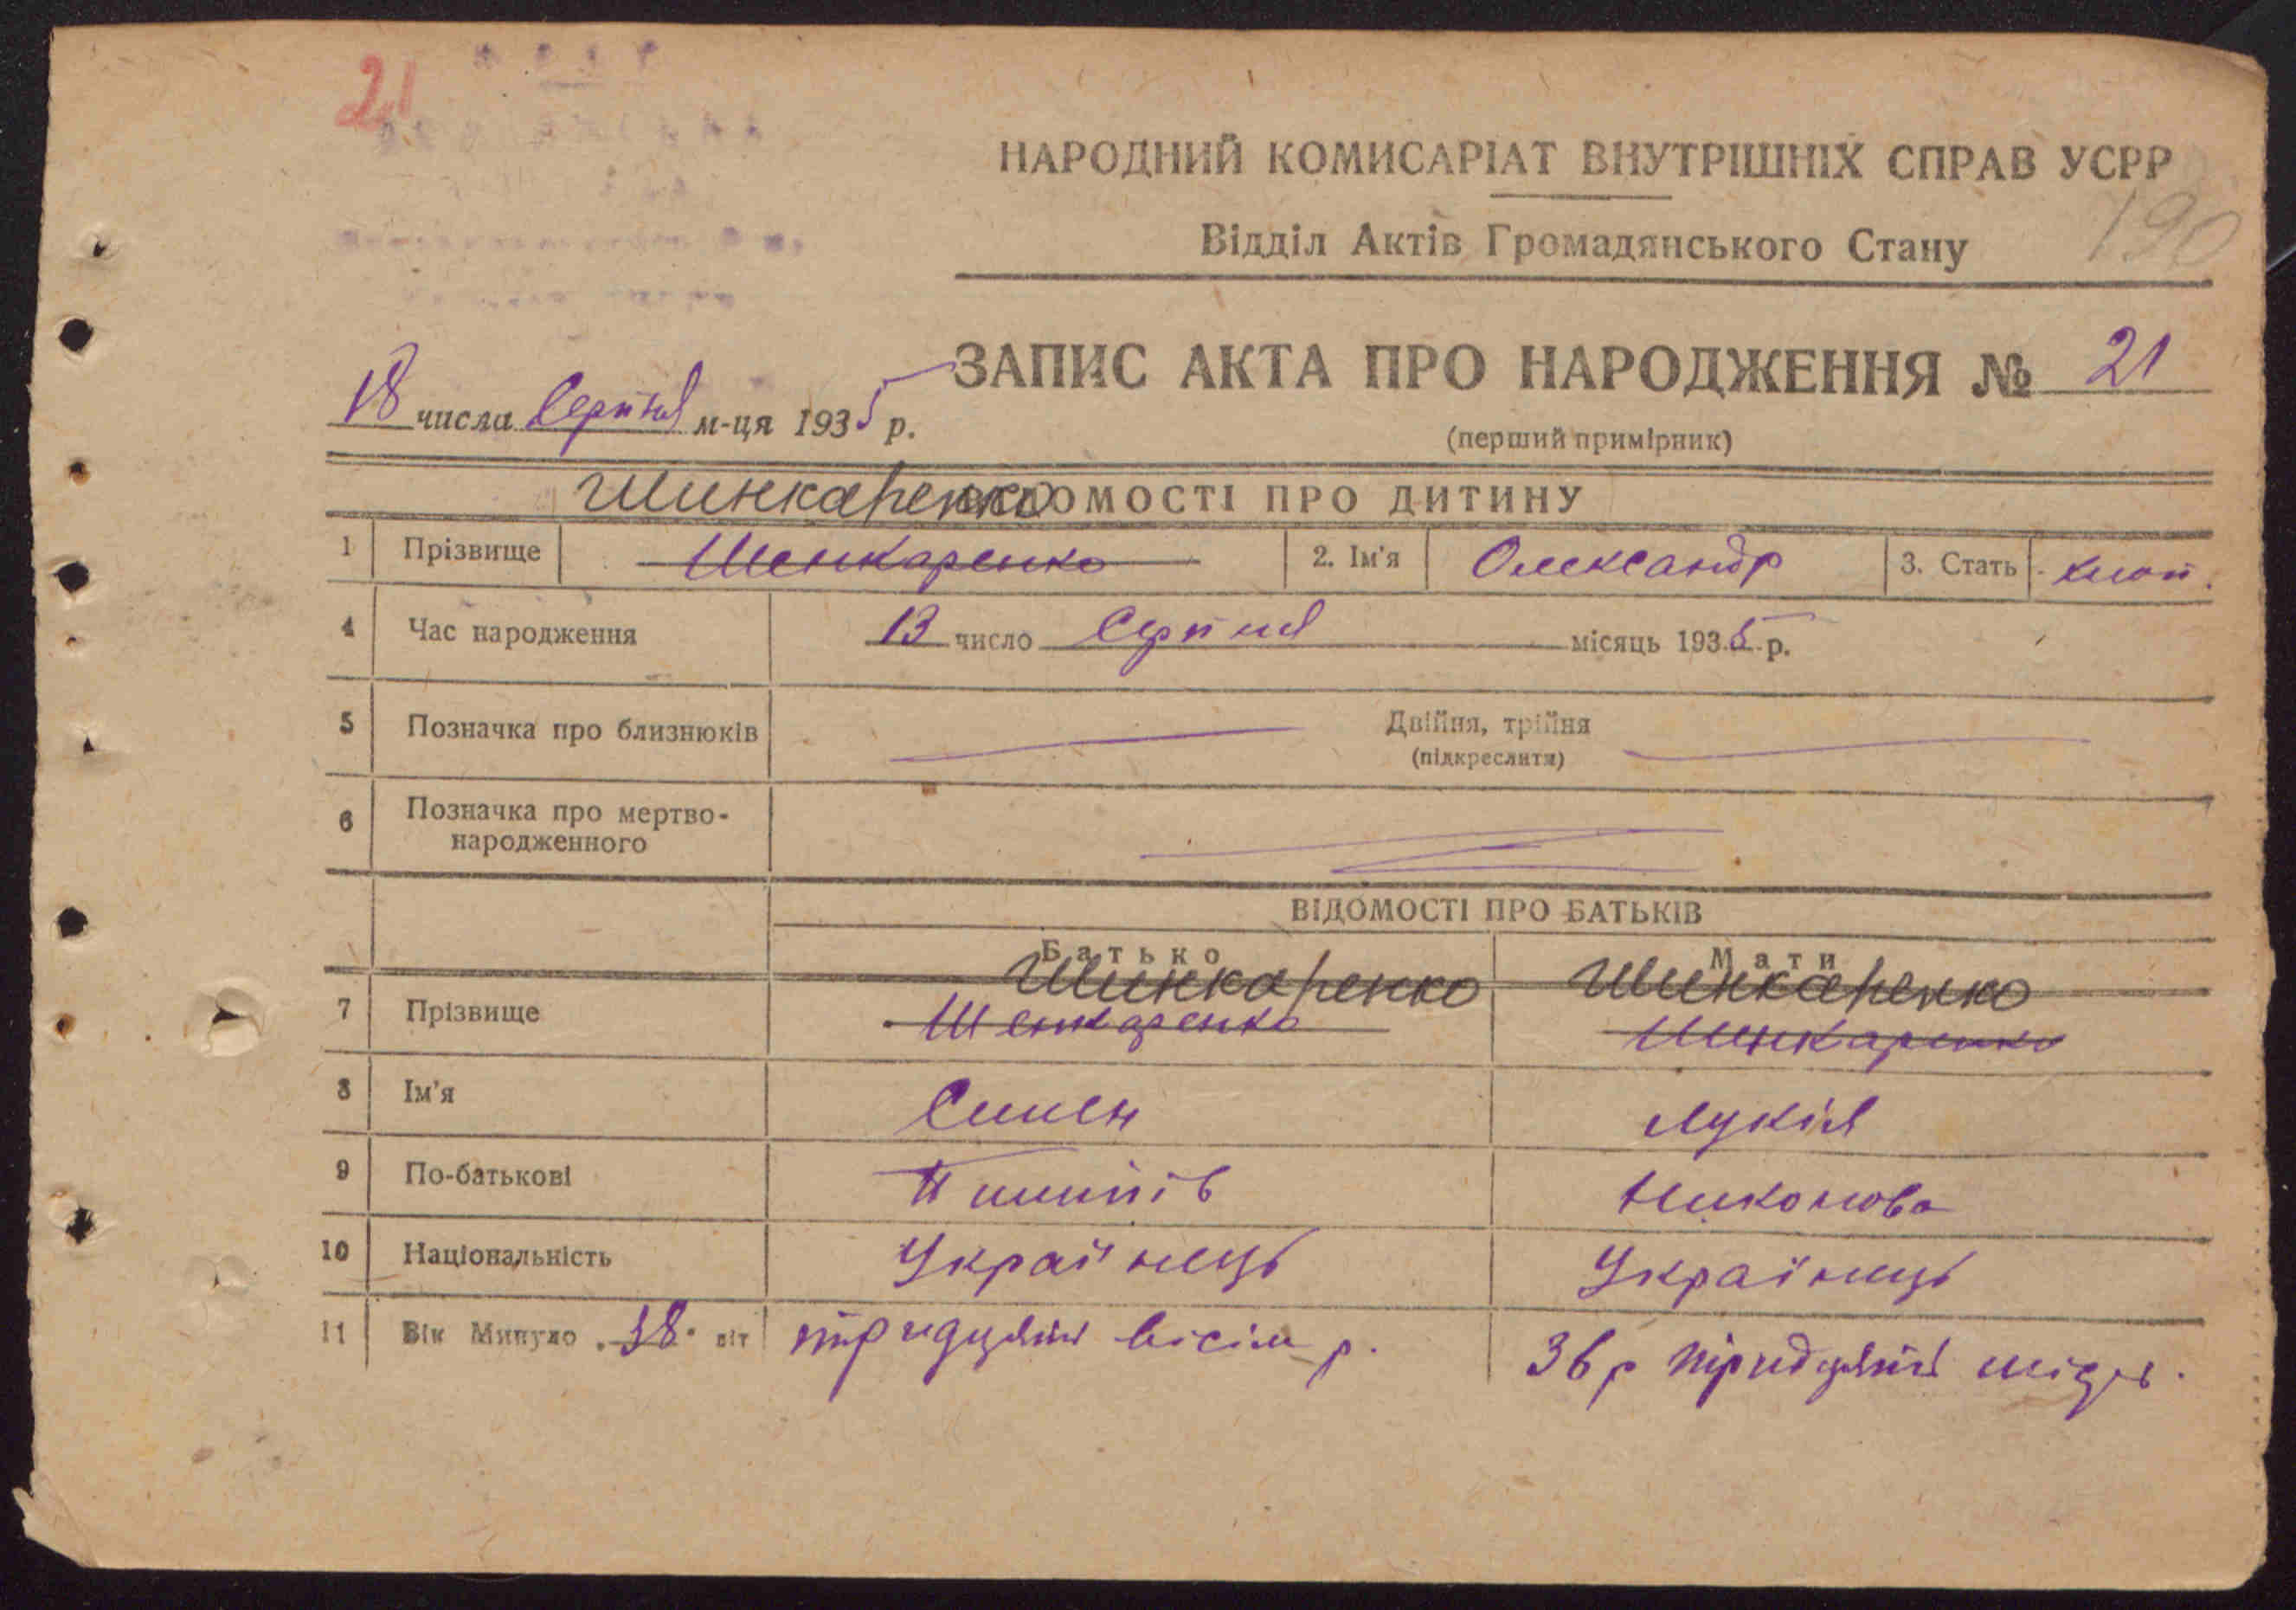 21
НАРОДНИЙ КОМИСАРІАТ ВНУТРІШНІХ СПРАВ УСРР
190
Відділ Актів Громадянського Стану
ЗАПИС АКТА ПРО НАРОДЖЕННЯ № 21
18 числа Серпня м-ця 1935 р.
(перший примірник)
Шинкаренко
ВІДОМОСТІ ПРО ДИТИНУ
1 Прізвище Шенкаренко 2. Ім'я Олександр 3. Стать хлоп.
4 Час народження 13 число Серпня місяць 1935 р.
5 Позначка про близнюків Двійня, трійня
(підкреслити)
6 Позначка про мертво-
народженного
ВІДОМОСТІ ПРО БАТЬКІВ
Батько Мати
Шинкаренко Шинкаренко
7 Прізвище Шенкаренко Шенкаренко
8 Ім'я Семен Лукія
9 По-батькові Пилипів Никонова
10 Національність Українець Українець
11 Вік Минуло 38 літ тридцять вісім р. 36 р тридцять